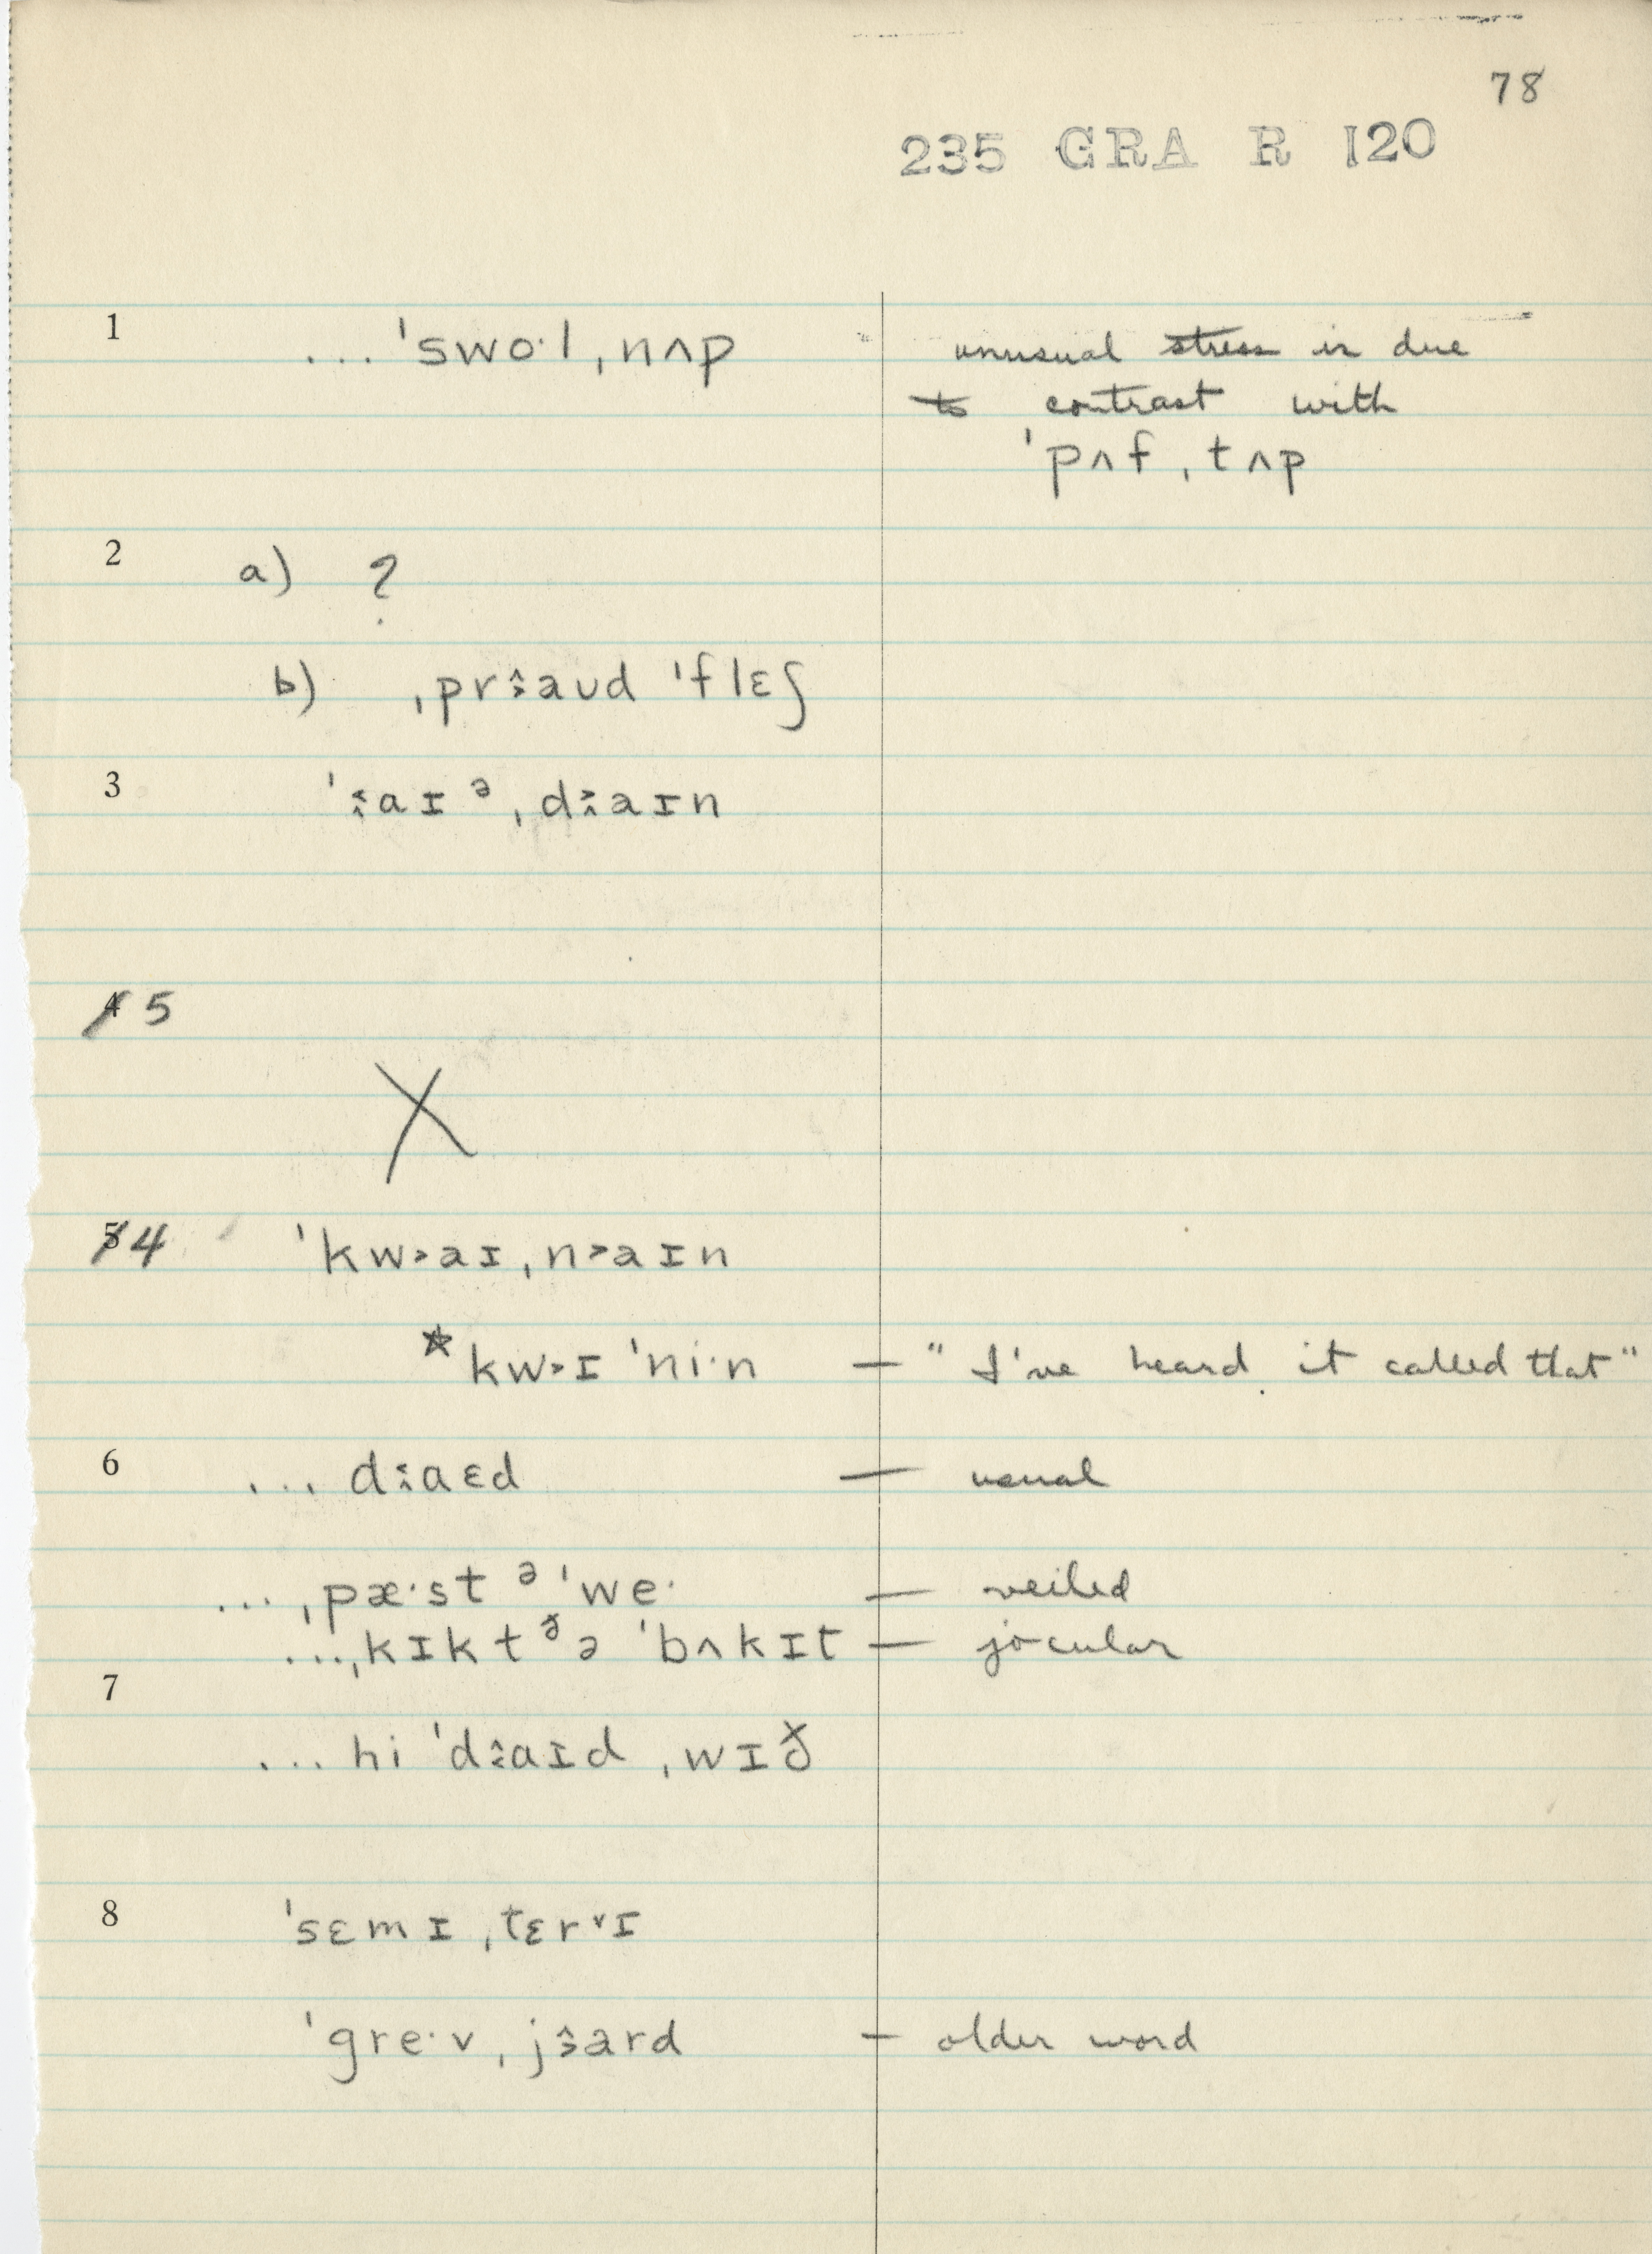 78
235 GRA R 120
1 ... ˈswo·l ˌnʌp unusual stress is due
to contrast with
ˈpʌf ˌtʌp
2 a) ?
b) ˌpraʊd ˈflɛʃ
3 ˈaɪᵊ ˌdaɪn
4 5
X
5 4 ˈkw˃aɪ ˌn˃aɪn
*kw˃ɪ ˈni·n — "I've heard it called that"
6 ... daɛd — usual
... ˌpæ·st ᵊ ˈwe· — veiled
... ˌkɪkt ᵟə ˈbʌkɪt — jocular
7
... hi ˈdaɪd ˌwɪð
8 ˈsɛmɪ ˌtɛr˅ɪ
ˈgre·v ˌjard — older word